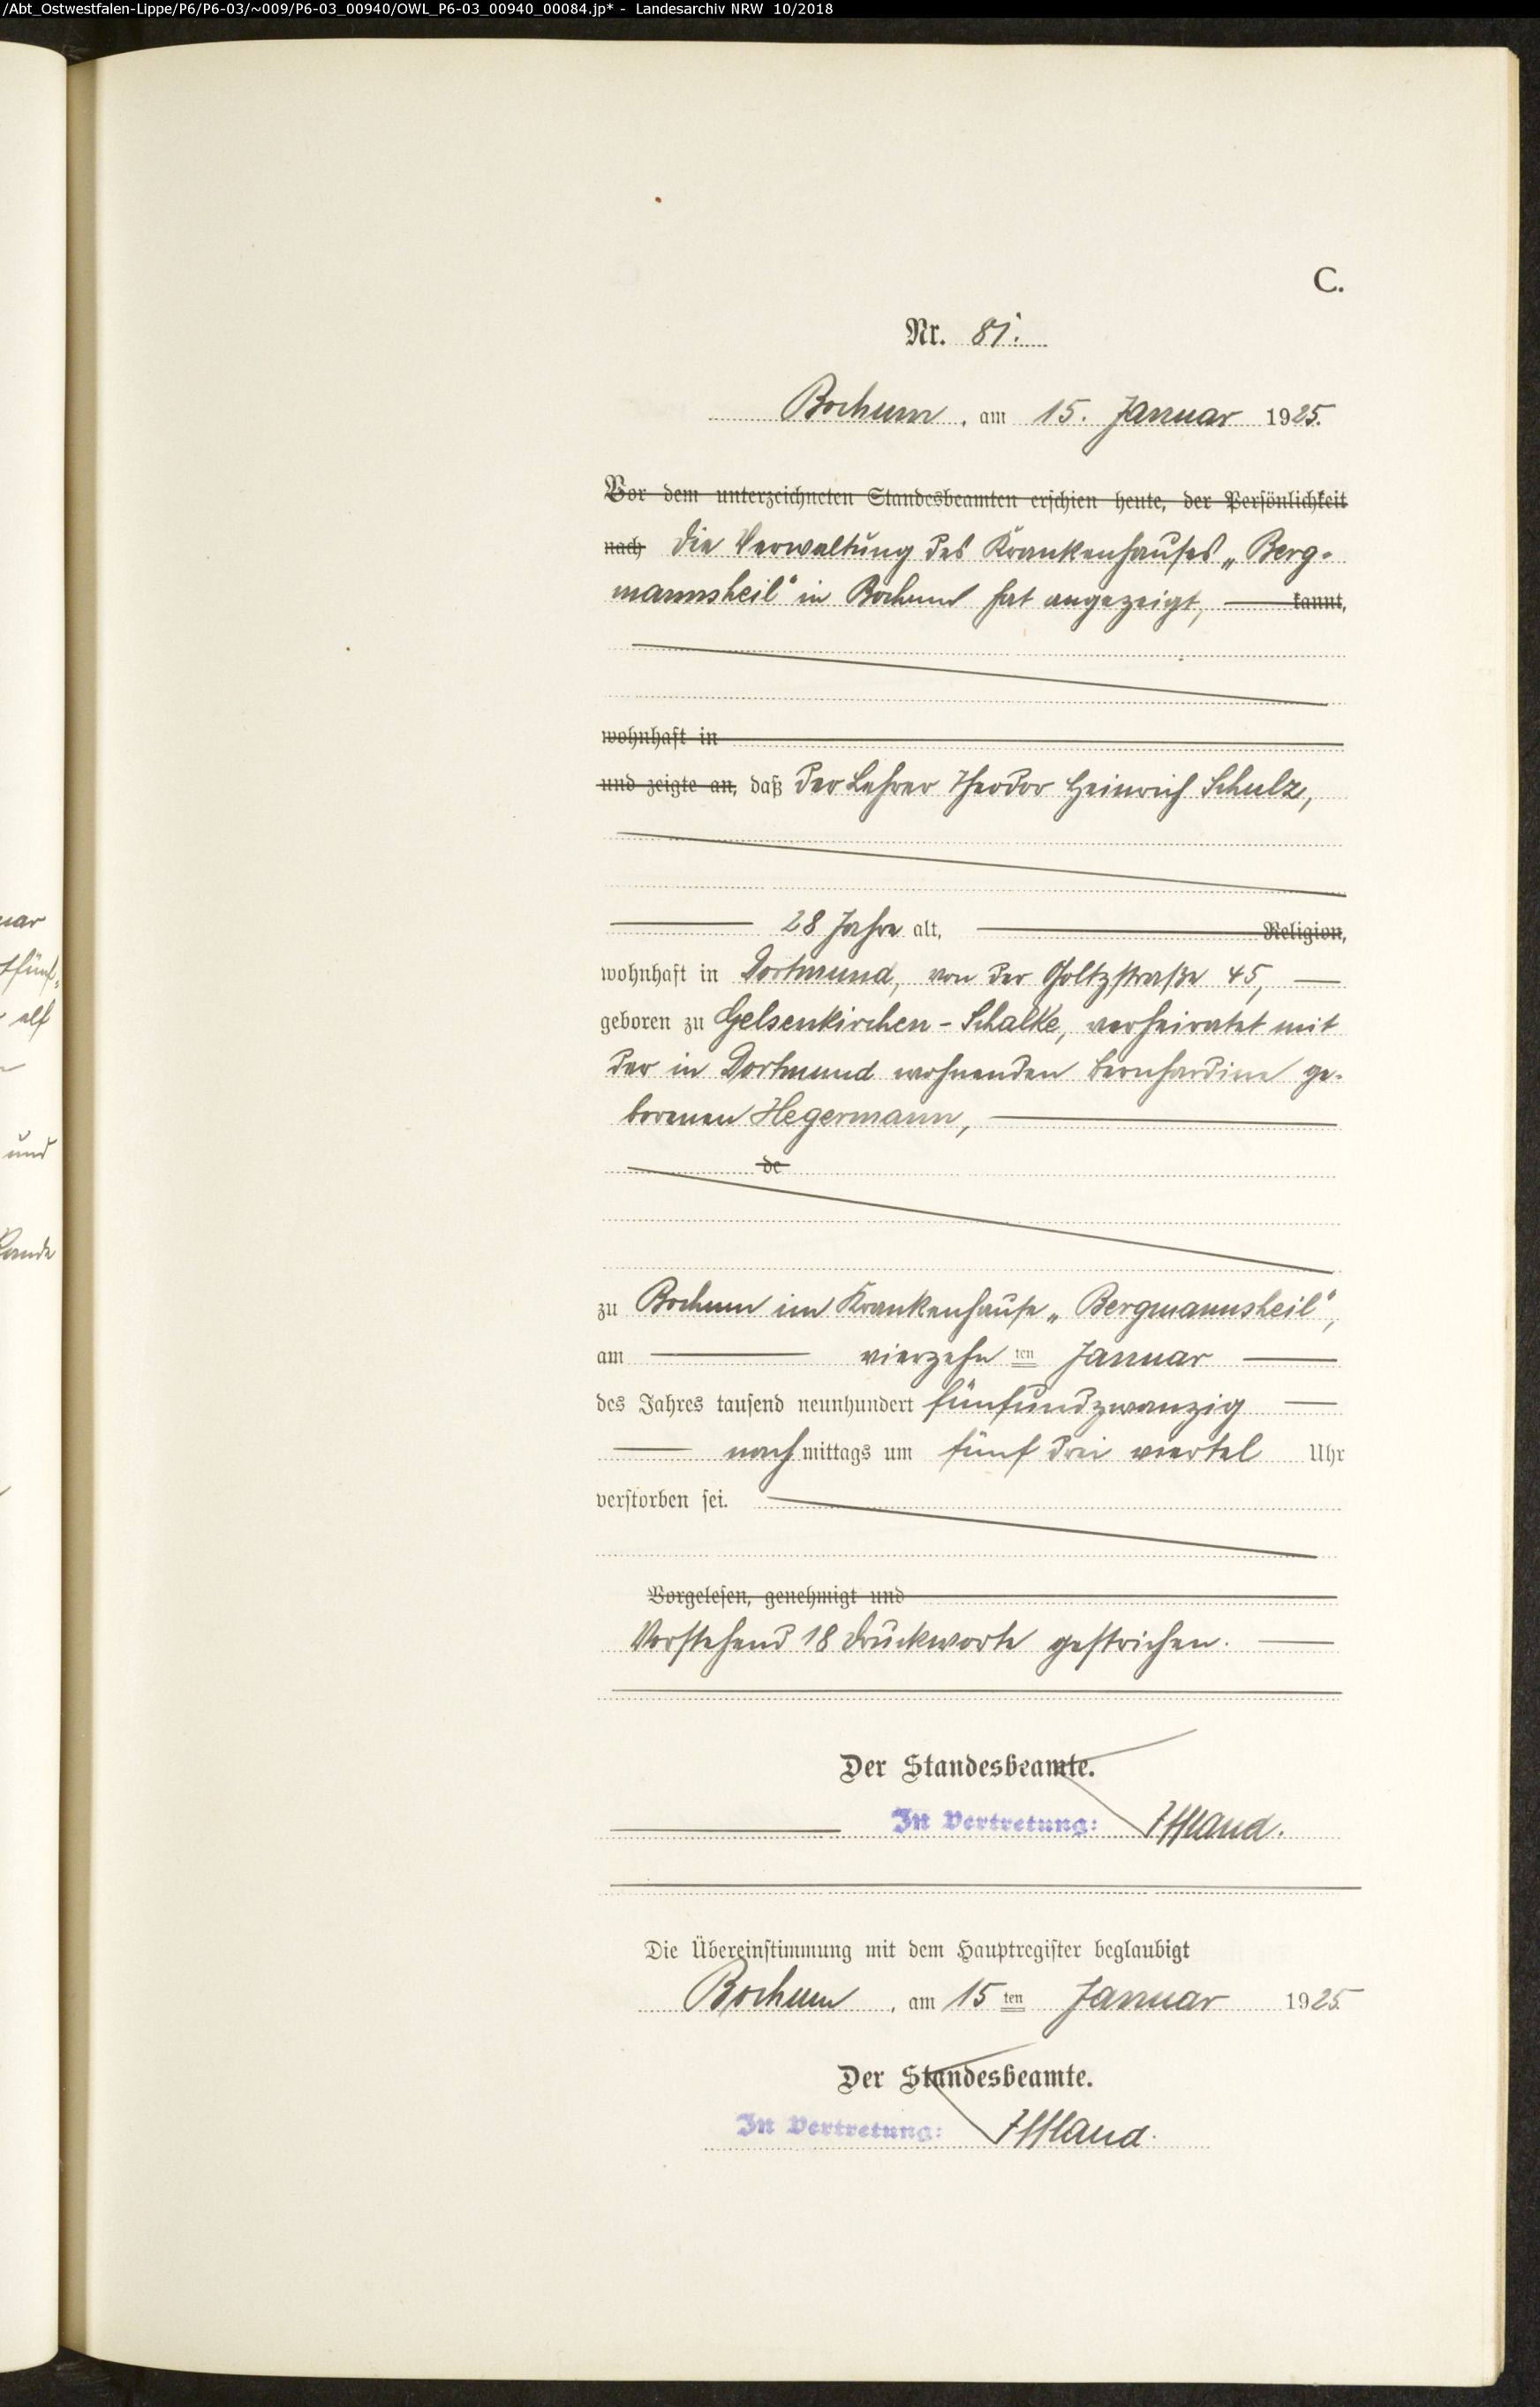 /Abt_Ostwestfalen-Lippe/P6/P6-03/~009/P6-03_00940/OWL_P6-03_00940_00084.jp* - Landesarchiv NRW 10/2018
C.
Nr. 81.
Bochum, am 15. Januar 1925.
Vor dem unterzeichneten Standesbeamten erschien heute, der Persönlichkeit
nach Die Verwaltung des Krankenhauses „Berg-
mannsheil" in Bochum hat angezeigt, kannt,
wohnhaft in
und zeigte an, daß der Lehrer Theodor Heinrich Schulz,
28 Jahre alt, Religion,
wohnhaft in Dortmund, von der Goltzstraße 45,
geboren zu Gelsenkirchen - Schalke, verheiratet mit
der in Dortmund wohnenden Bernhardine ge-
borenen Hegermann,
de
zu Bochum im Krankenhause „Bergmannsheil",
am vierzehn ten Januar
des Jahres tausend neunhundert fünfundzwanzig
nach mittags um fünf drei viertel Uhr
verstorben sei.
Vorgelesen, genehmigt und
Vorstehend 18 Druckworte gestrichen.
Der Standesbeamte.
In Vertretung: Iffland.
Die Übereinstimmung mit dem Hauptregister beglaubigt
Bochum, am 15 ten Januar 1925
Der Standesbeamte.
In Vertretung: Iffland.
elf
und